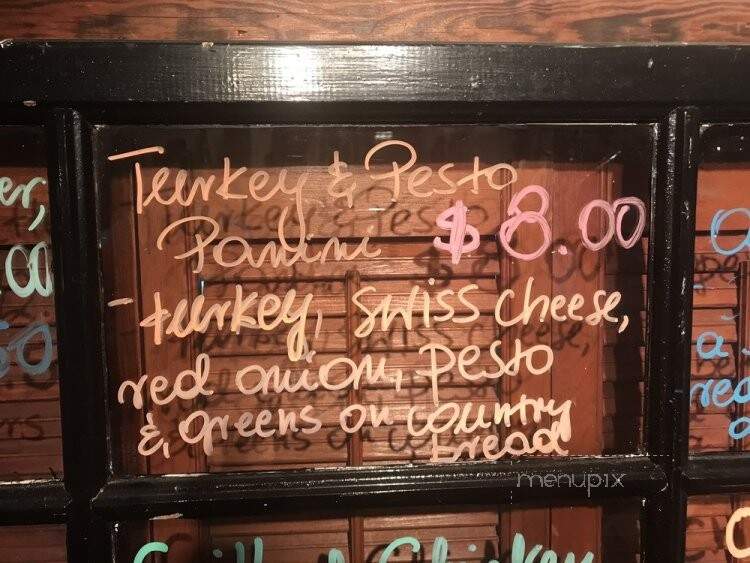 Turkey & Pesto
Panini $8.00
- turkey, swiss cheese,
red onion, pesto
& greens on country
bread
menupix
er,
.00
50
a
red
Grilled Chicken